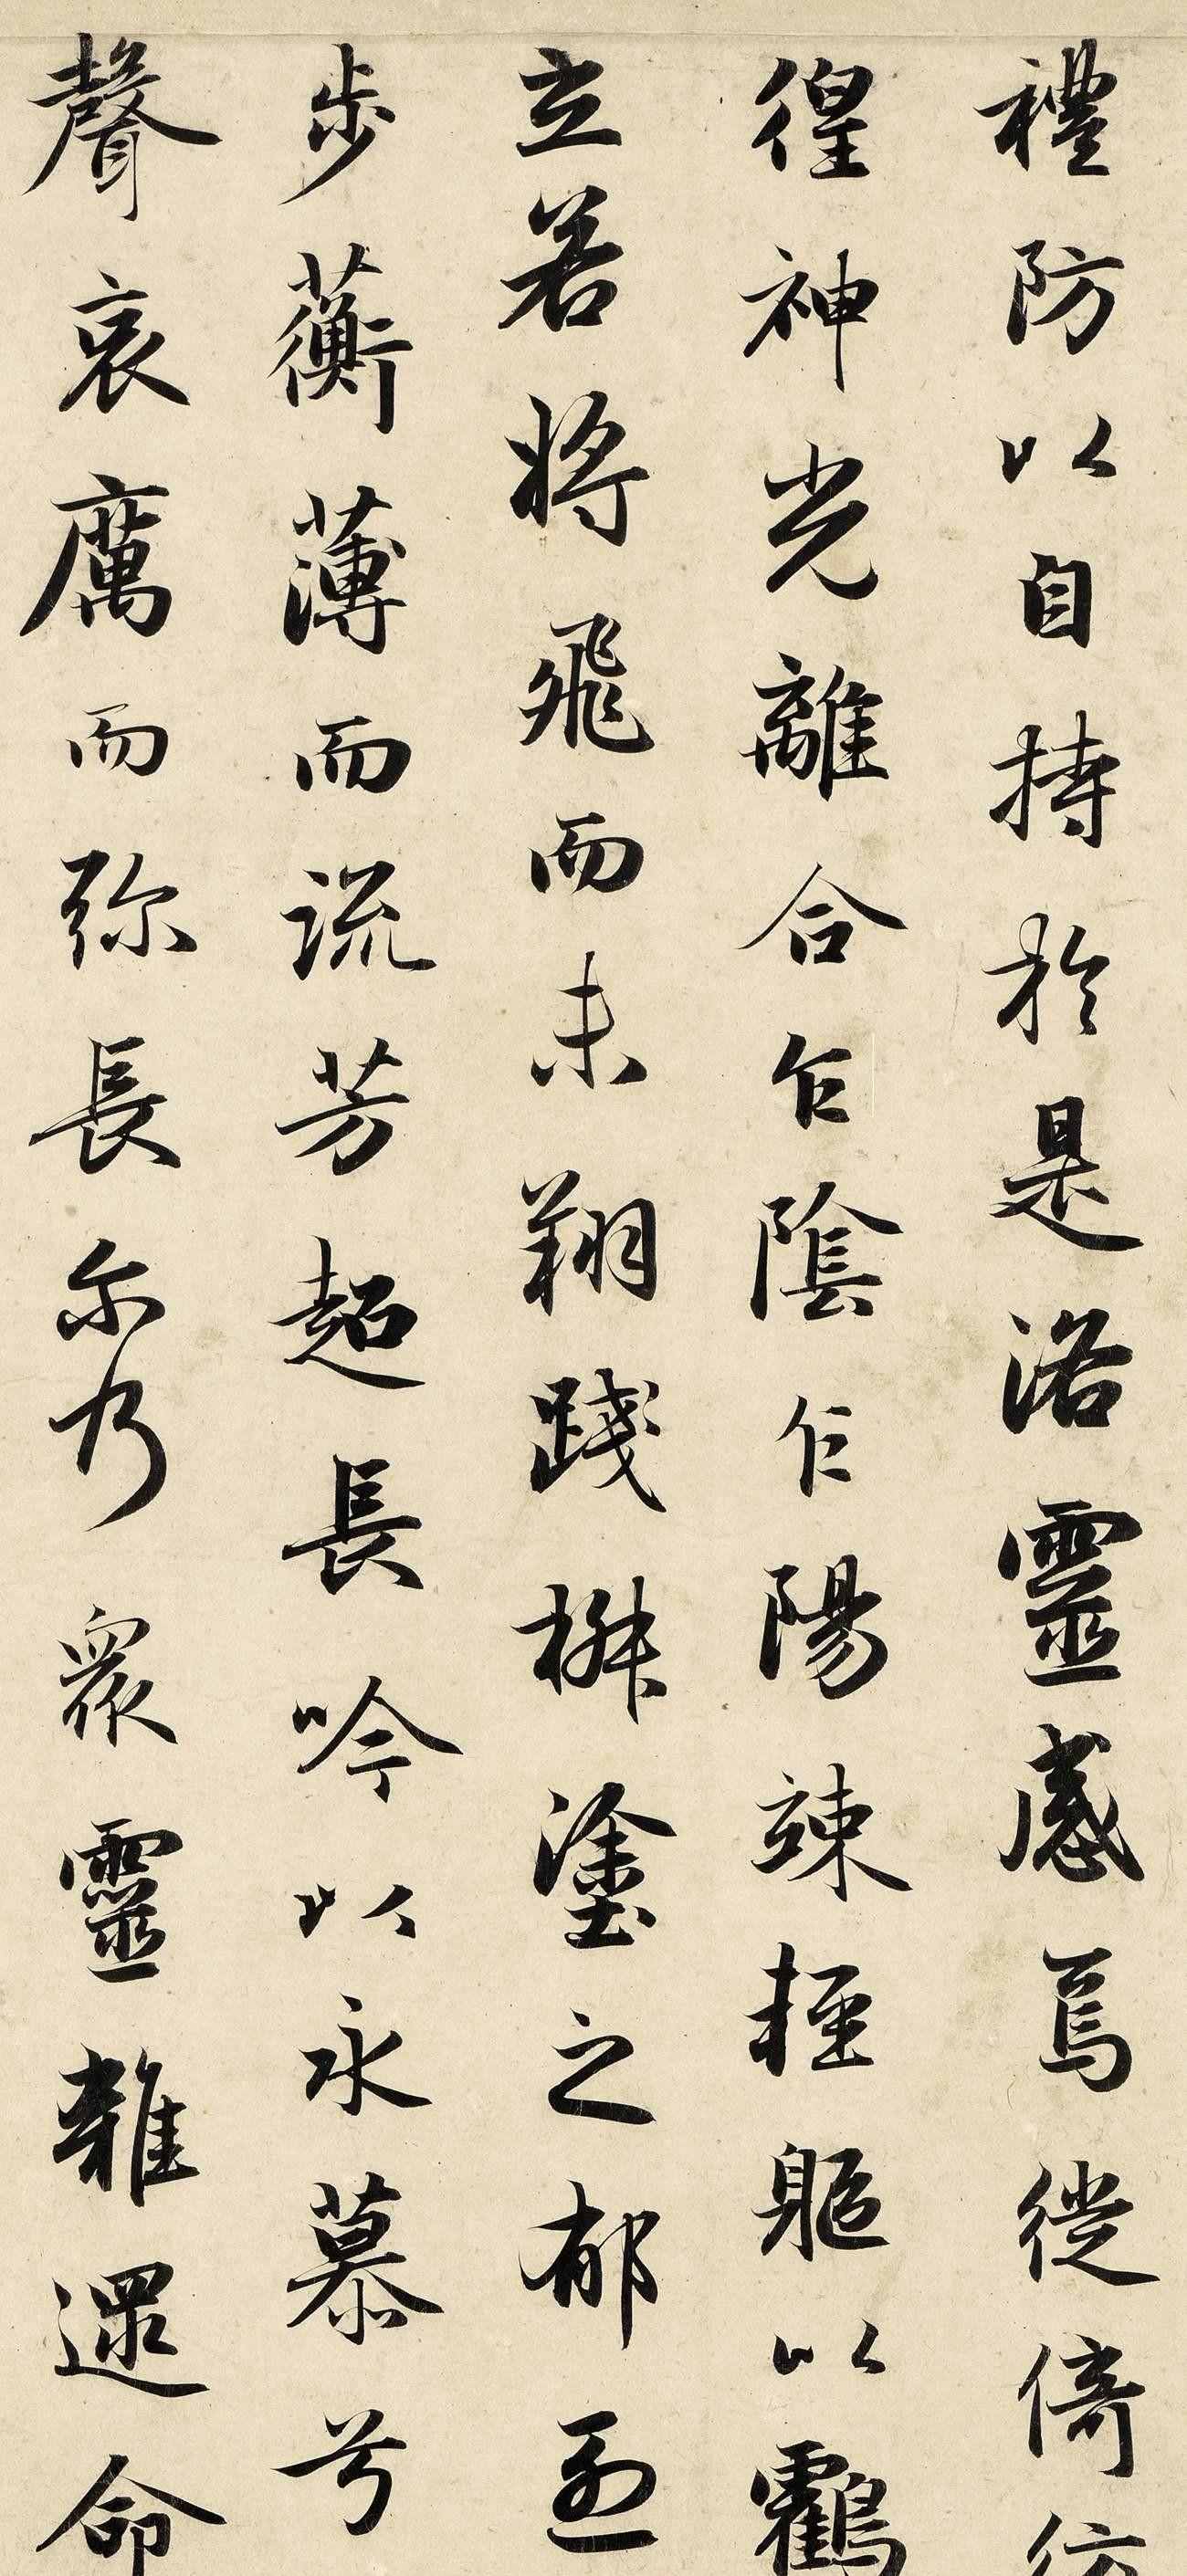 禮防以自持於是洛靈感焉徙倚彷
徨神光離合乍陰乍陽竦輕軀以鶴
立若將飛而未翔踐椒塗之郁烈
步蘅薄而流芳超長吟以永慕兮
聲哀厲而弥長尓乃眾靈雜遝命